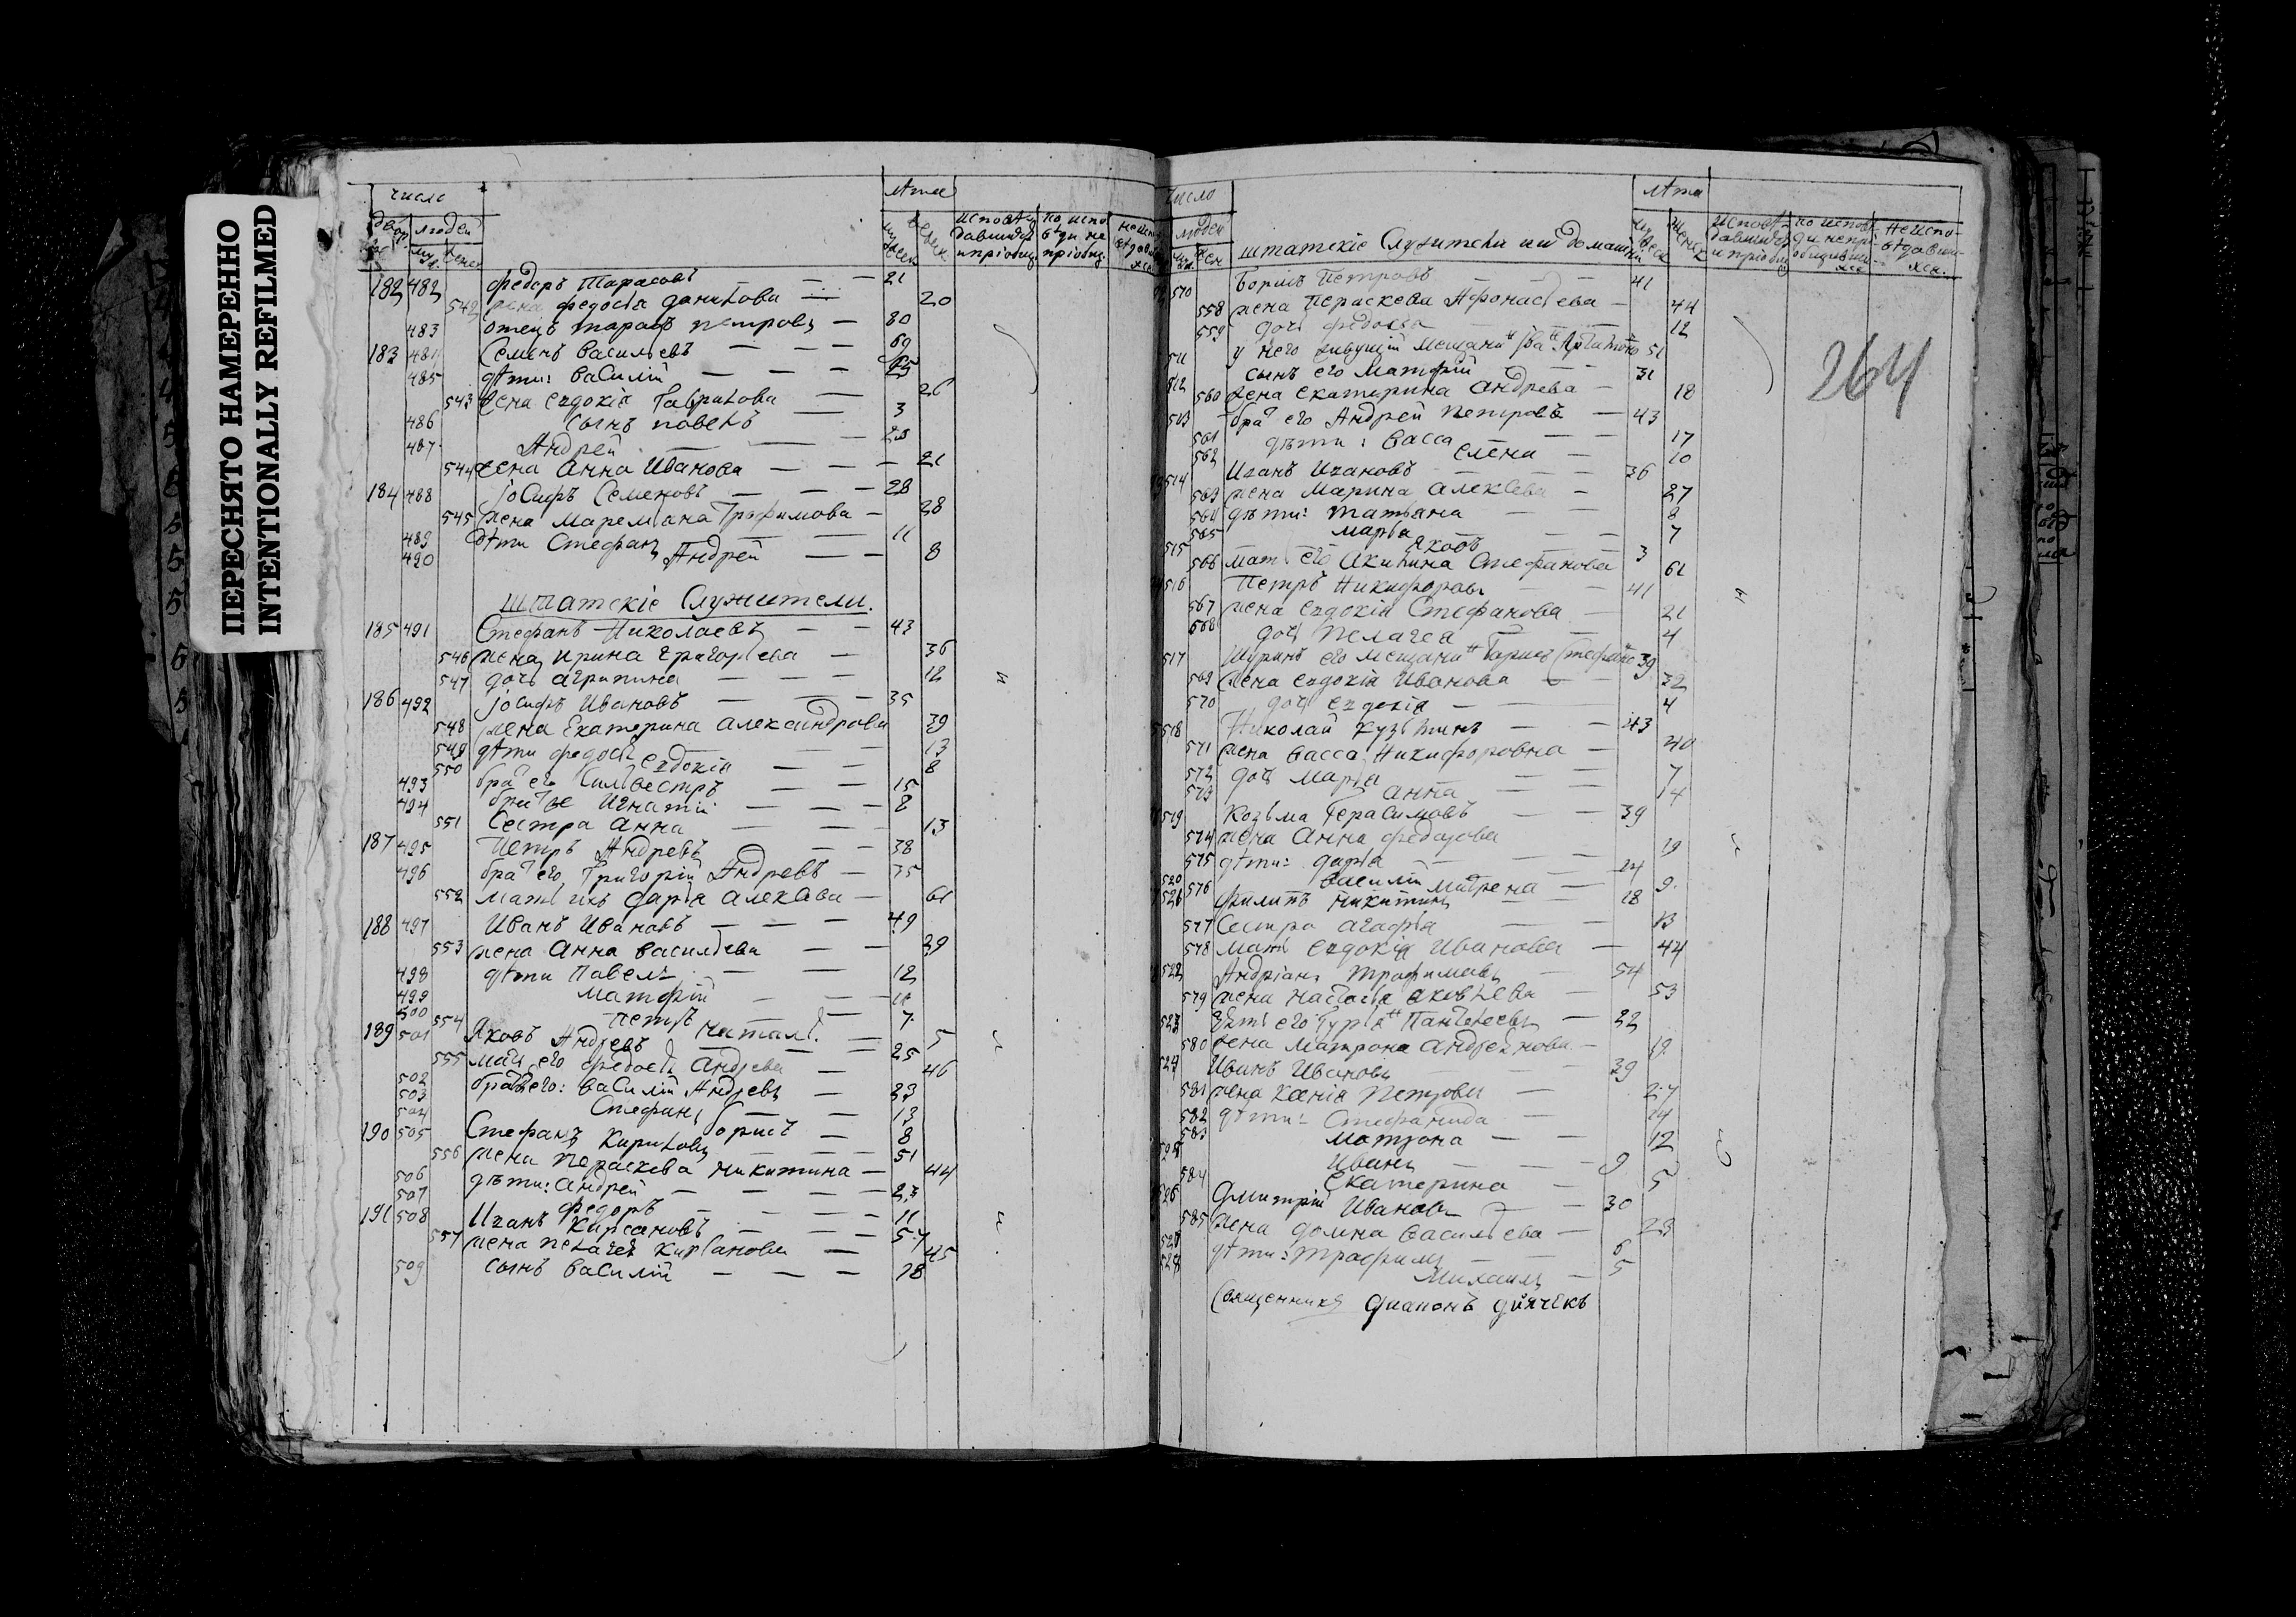 ПЕРЕСНЯТО НАМЕРЕННО
INTENTIONALLY REFILMED
число
людей
лѣта
182 482 федоръ Тарасовъ — — 21
542 жена федосья данилова — 20
483 отецъ тарасъ петровъ — 80
183 484 Семенъ Васильевъ — — — 69
485 дѣти: василій — — —
543 жена евдокія Гаврилова — 26
486 сынъ павелъ — 3
487 Андрей — — —
544 жена Анна Иванова — — — 21
184 488 іосифъ Семеновъ — — — 28
545 жена Маремьяна Трофимова — 28
489 дѣти Стефанъ — — 11
490 Андрей — — 8
штатскіе Служители.
185 491 Стефанъ Николаевъ — — 43
546 жена ирина григорьева — 36
547 дочь агрипина — — — 12
186 492 іосифъ Ивановъ — — — 35
548 жена Екатерина александрова 39
549 дѣти федосья — — 13
550 евдокія — — 8
493 братъ его Силвестръ — — 15
494 Игнатій — — — 8
551 Сестра анна — — — 13
187 495 Петръ Андревъ — — 38
496 братъ его Григорій Андревъ — 35
552 мать ихъ дарья алексѣва — 61
188 497 Иванъ Ивановъ — — 49
553 жена Анна васильева — — 29
498 дѣти Павелъ — — — 12
499 Матфій — — 11
500 петръ — — 7
554 Натальꙗ — 5
189 501 Яковъ Андревъ — 25
555 мать его федосья Андрева — 46
502 братья его: василій Андревъ — 23
503 Стефанъ — — 13
504 борисъ — 8
190 505 Стефанъ Кириловъ — — — 51
556 жена Параскева никитина — 44
506 дѣти: андрей — — — — 23
507 федоръ — — — 11
191 508 Иванъ Кирсановъ — — — 57
557 жена пелагея кирсанова — 45
509 сынъ василій — — — 18
число
людей
лѣта
штатскіе Служители и ихъ домашни
264
510 Борисъ Петровъ — — 41
558 жена Параскева Афонасьева — 44
559 дочь федосья — — 12
511 у него живущій мещанинъ 51
512 сынъ его Матфій — — 31
560 жена екатерина андрева — 18
513 братъ его Андрей петровъ — 43
561 дѣти: васса — — 17
562 елена — 10
514 Иванъ Ивановъ — — — 36
563 жена Марина алексѣва — 27
564 дѣти: татьяна — — 8
565 марья — — 7
515 яковъ — 3
566 мать его Акилина Стефанова 61
516 Петръ Никифоровъ — — 41
567 жена евдокія Стефанова — 21
568 дочь пелагея — — 4
517 Шуринъ его мещанинъ 39
569 жена евдокія Иванова — — 32
570 дочь евдокія — — 4
518 Николай Кузьминъ — — 43
571 жена васса Никифоровна — 40
572 дочь марья — — 7
573 анна — — 4
519 Козьма Герасимовъ — — 39
574 жена Анна федорова
575 дѣти: дарья — — — 19
520 василій — 14
576 матрена — 9
521 Филипъ никитинъ — — 18
577 Сестра агафья — 13
578 мать евдокія Иванова — 44
522 Андріанъ трофимовъ — 54
579 жена настасья яковлева — 53
523 Зять его 22
580 жена матрона андреянова — 19
524 Иванъ Ивановъ — — 39
581 жена ксенія петрова — 27
582 дѣти: Стефанида — 14
583 матрона — — 12
Иванъ — — — 9
584 Екатерина — — 5
526 дмитрій Ивановъ — — 30
585 жена домна васильева — 23
527 дѣти: трофимъ — — 6
528 михаилъ — 5
Священникъ диаконъ дьячекъ